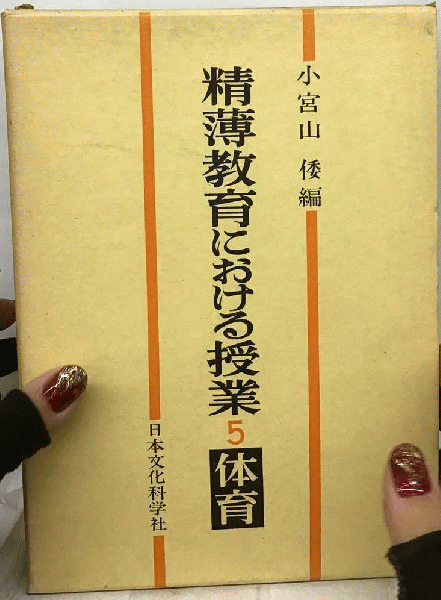 小宮山 倭編
精薄教育における授業 5 体育
日本文化科学社